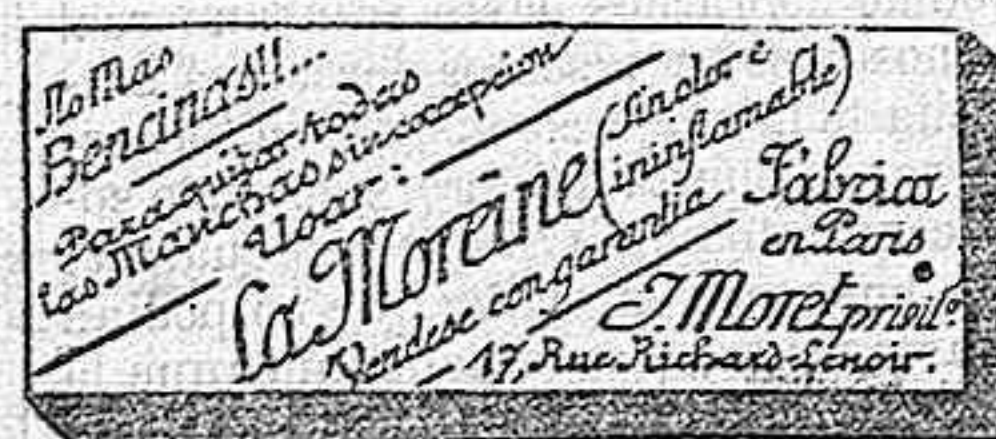 No Mas
Bencinas!!...
Para quitar todas
las Manchas sin excepcion
Usar:
La Moreine (sin olor é
ininflamable)
Vendese con garantia
Fábrica
en Paris
J. Moret privil.º
17, Rue Richard-Lenoir.